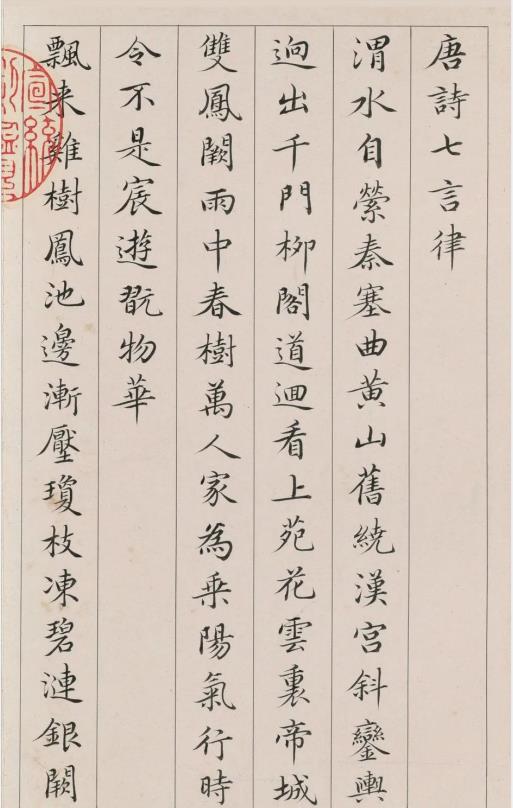 唐詩七言律
渭水自縈秦塞曲黄山舊繞漢宫斜鑾輿
逈出千門栁閣道迴看上苑花雲裏帝城
雙鳳闕雨中春樹萬人家為乗陽氣行時
令不是宸遊翫物華
飄来雞樹鳳池邊漸壓瓊枝凍碧漣銀闕